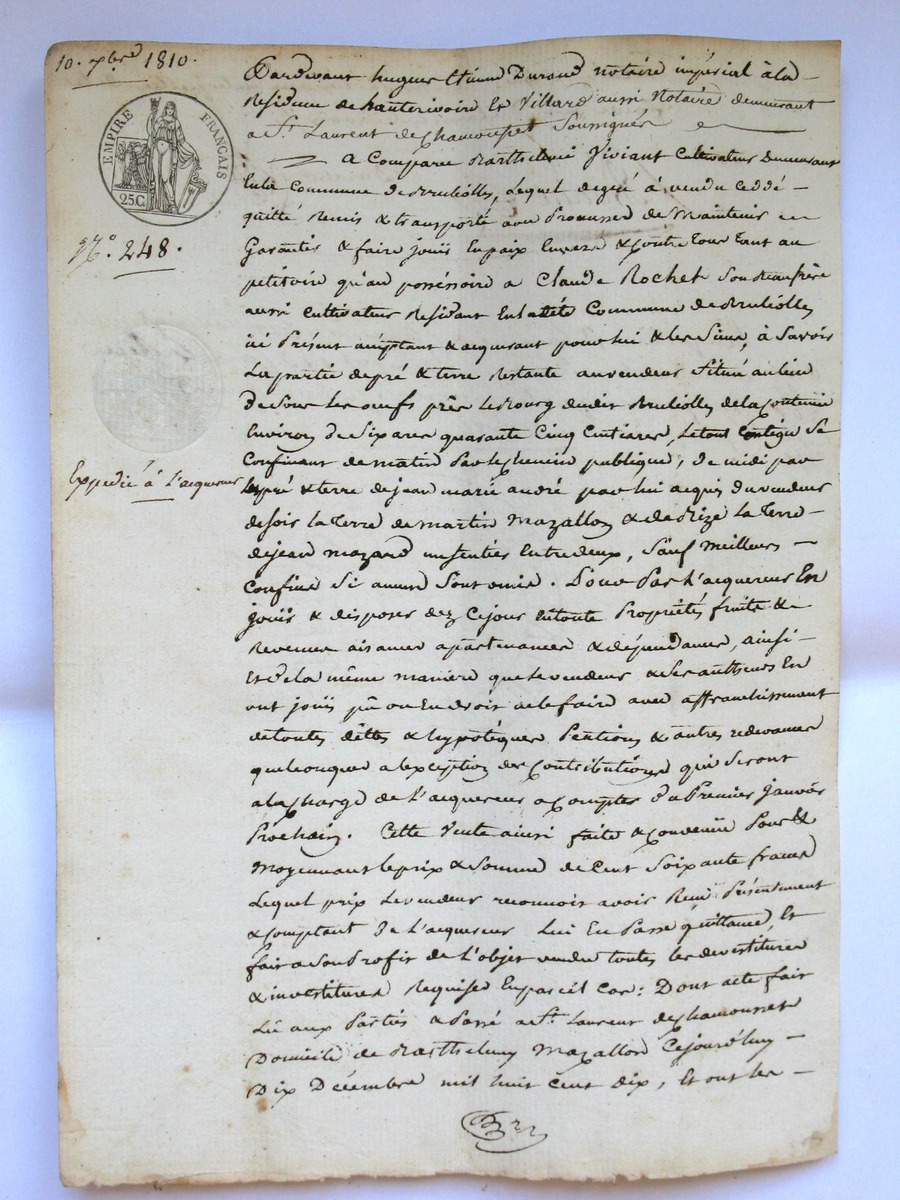 10. xbre 1810.
EMPIRE FRANÇAIS
25 C.
N.° 248.
Expedié à l'acquereur
Pardevant hugues Durand notaire impérial à la
Residence de hauterivoire Et Villard aussi Notaire demeurant
a St. Laurent de chamousset Soussignés
a Comparu Barthelemi Viviant Cultivateur demeurant
En la Commune de Brulliolles, Lequel de gré à vendu ceddé
quitté Remis & transporté avec Promesse de Maintenir
Garantir & faire jouir En paix Envers & contre tous tant au
petitoire qu'au possessoire a Claude Rochet Son Beaufrère
aussi cultivateur Residant En ladite Commune de Brulliolles
ici Présent acceptant & acquerant pour lui & les Siens, à Savoir
La partie de pré & terre Restante au vendeur Située au lieu
De Sous Les oeufs près le Bourg dudit Brulliolles de la Contenue
Environ de Six ares quarante Cinq Centiares, Le tout Contigu Se
Confinant de matin Par le chemin publique, de midi par
les pré & terre de jean marie andré par lui acquis du vendeur
de soir la Terre de martin Mazallon & de Bize la Terre
de jean mazard un sentier Entre deux, Sauf meilleurs
Confins Si aucuns Sont omis. Pour Par l'acquereur En
jouir & disposer dez Ce jour En toute Propriétés fruits &
Revenus aisances apartenances & dépendances, ainsi
Et de la même manière que le vendeur & Ses autheurs En
ont jouis pu ou En droit de le faire avec affranchissement
de toutes dettes & hypotèques Pentions & autres redevances
quelconques a l'exception des Contributions qui Seront
a la Charge de l'acquereur a Compter du Premier janvier
Prochain. Cette Vente ainsi faite & Convenue Pour &
Moyennant le prix & Somme de Cent Soixante francs
Lequel prix Le vendeur reconnoit avoir Recu Présentement
& comptant de l'acquereur Lui En Passe quittance, Et
fait a Son Profit de l'objet vendu toutes les devestitures
& investitures Requises En pareil Cas: Dont acte fait
Lu aux Parties & Passé a St. Laurent de chamousset
Domicile de Barthelemy Mazallon Cejourd'huy
Dix Décembre mil huit cent dix, Et ont les